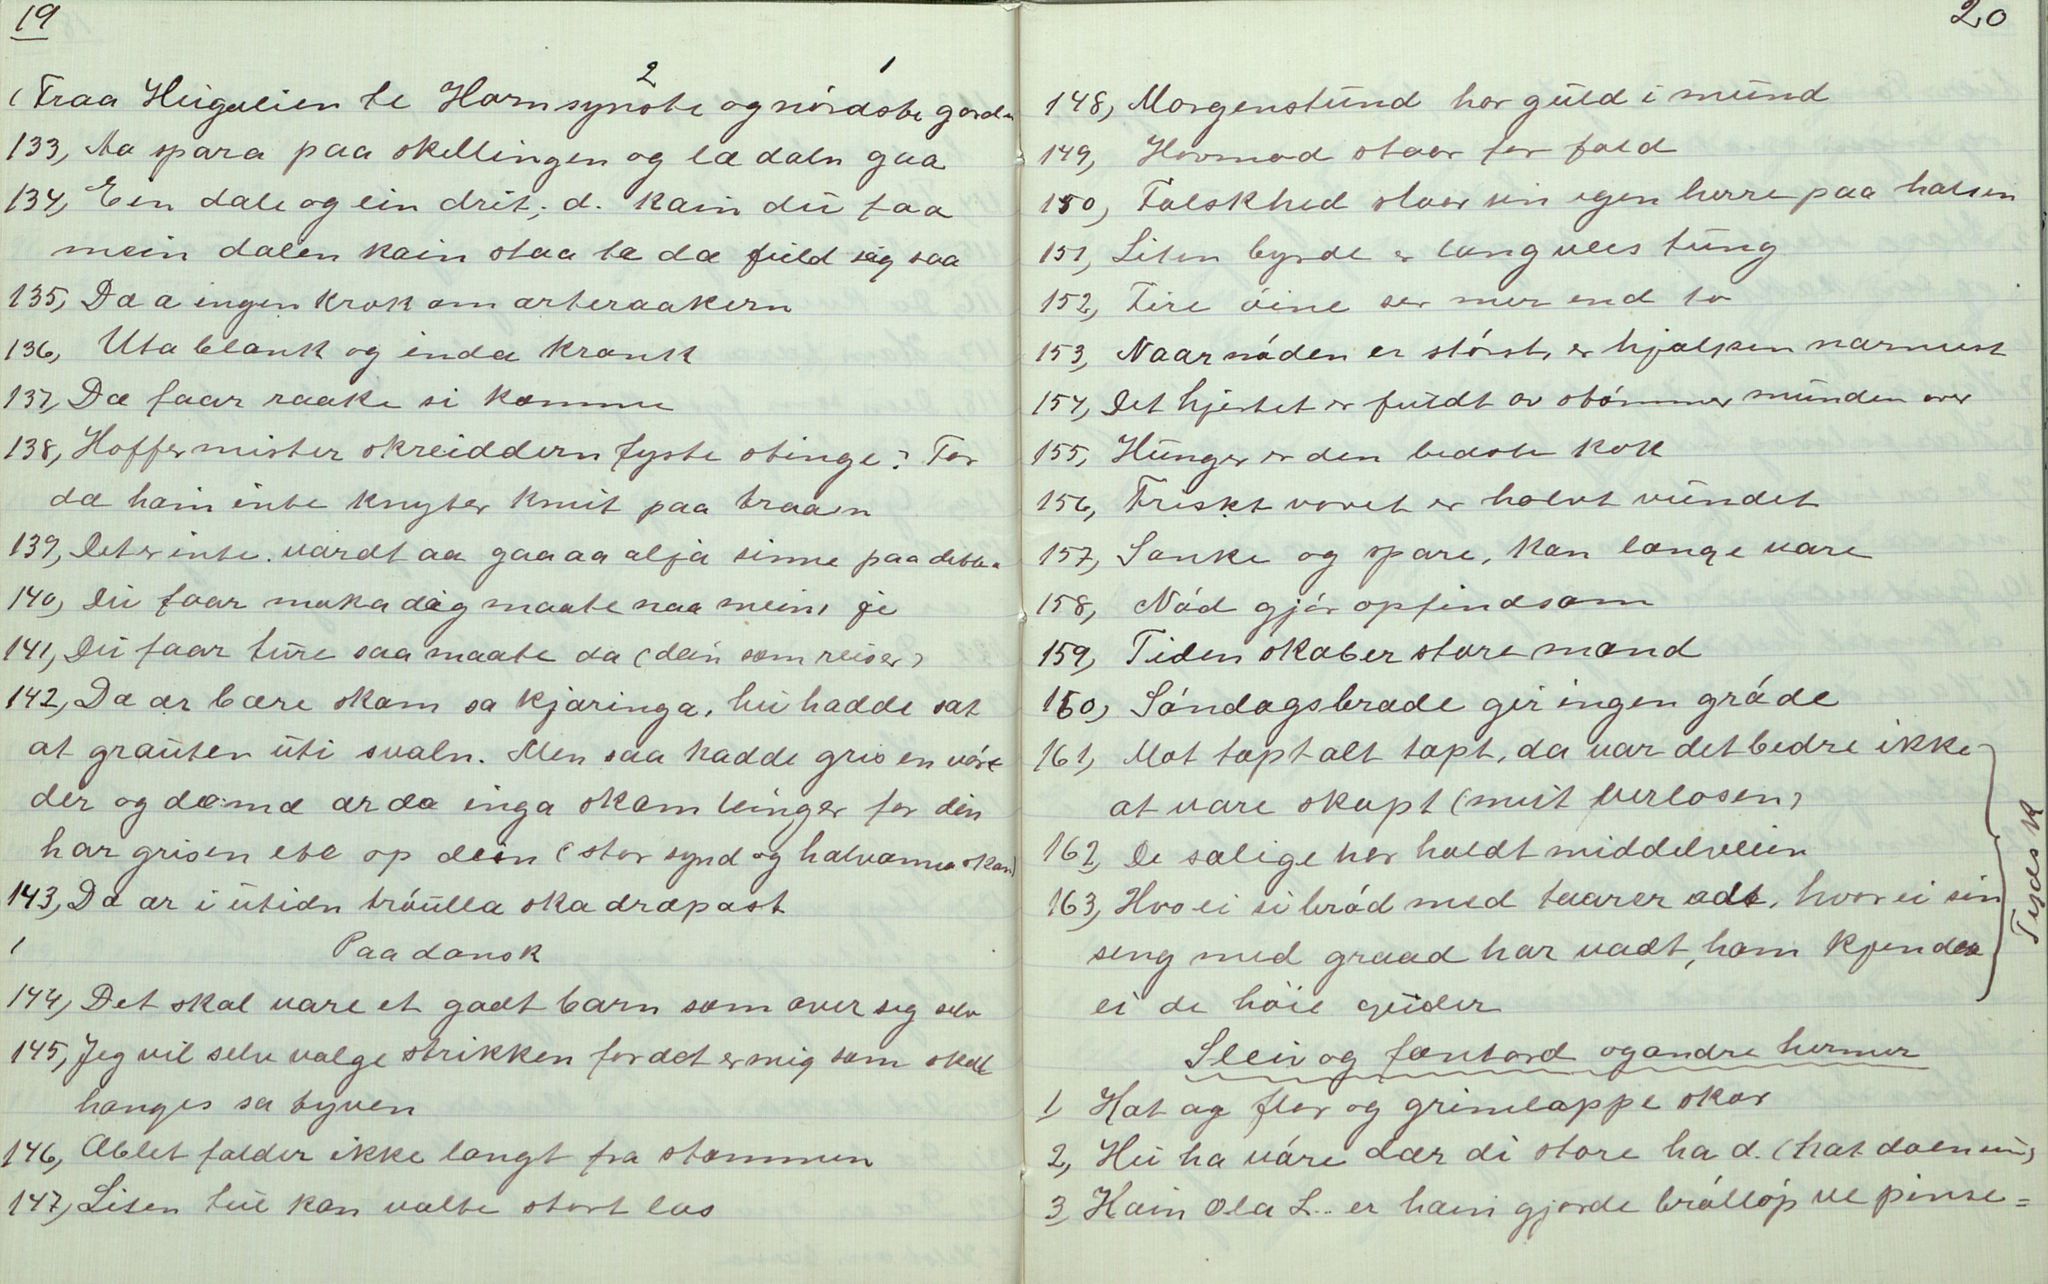 19
2 1
(Fraa Hugulien te Horn synste og nórdste gard
133, Aa spara paa skellingen og læ daln gaa
134, Ein dale og ein drit, d. kain du faa
mein dalen kain staa te dæ fuld sig saa
135, Dæ a ingen krok om arteraakern
136, Uta blank og inda krank
137, Dæ faar raake si komme
138, Hoffer mister skreiddern fyste stinge? For
dæ hain inte knyter knut paa traan
139, Det er inte vardt aa gaa aa alja sinne paa dette
140, Du faar maka dæg maate naa mein, je
141, Du faar ture saa maate da (dain som reiser)
142, Da ær bære skam sa kjæringa, hu hadde sat
at grauten uti svaln. Men saa hadde grisen vóre
der og dæmæ ær dæ inga skam leinger for din
har grisen ete op dein (stor synd og halvanna skam)
143, Da ær i utidn tróulla ska dræpast
1 Paa dansk
144, Det skal være et godt barn som aver seg selv
145, Jeg vil selv vælge strikken for det er mig som skal
hænges sa tyven
146, Æblet falder ikke langt fra stammen
147, Liten tue kan vælte stort læs
20
148, Morgenstund har guld i mund
149, Hovmod staar for fald
150, Falskhed slaar sin egen herre paa halsen
151, Liten byrde er langveis tung
152, Fire óine ser mer end to
153, Naar nóden er stórst, er hjælpen nærmest
154, Det hjertet er fuldt av stómmer munden over
155, Hunger er den bedste kok
156, Friskt vovet er halvt vundet
157, Sanke og spare, kan længe vare
158, Nód gjór opfindsom
159, Tiden skaber store mænd
160, Sóndagsbrade gir ingen gróde
161, Mot tapt alt tapt, da var det bedre ikke
at være skapt (mut verlosen)
162, De salige har holdt middelveien
163, Hvo ei si bród med taarer ædt, hvor ei sin
seng med graad har vædt, ham kjender
ei de hóie guder
Tydsk
Sleiv og fantord og andre hermer
1 Hat og flor og grimelappe skor
2, Hu ha vóre dær di store ha d. (hat doen sin)
3 Hain Ola L.. er hain gjorde bróllóp ve pinse=